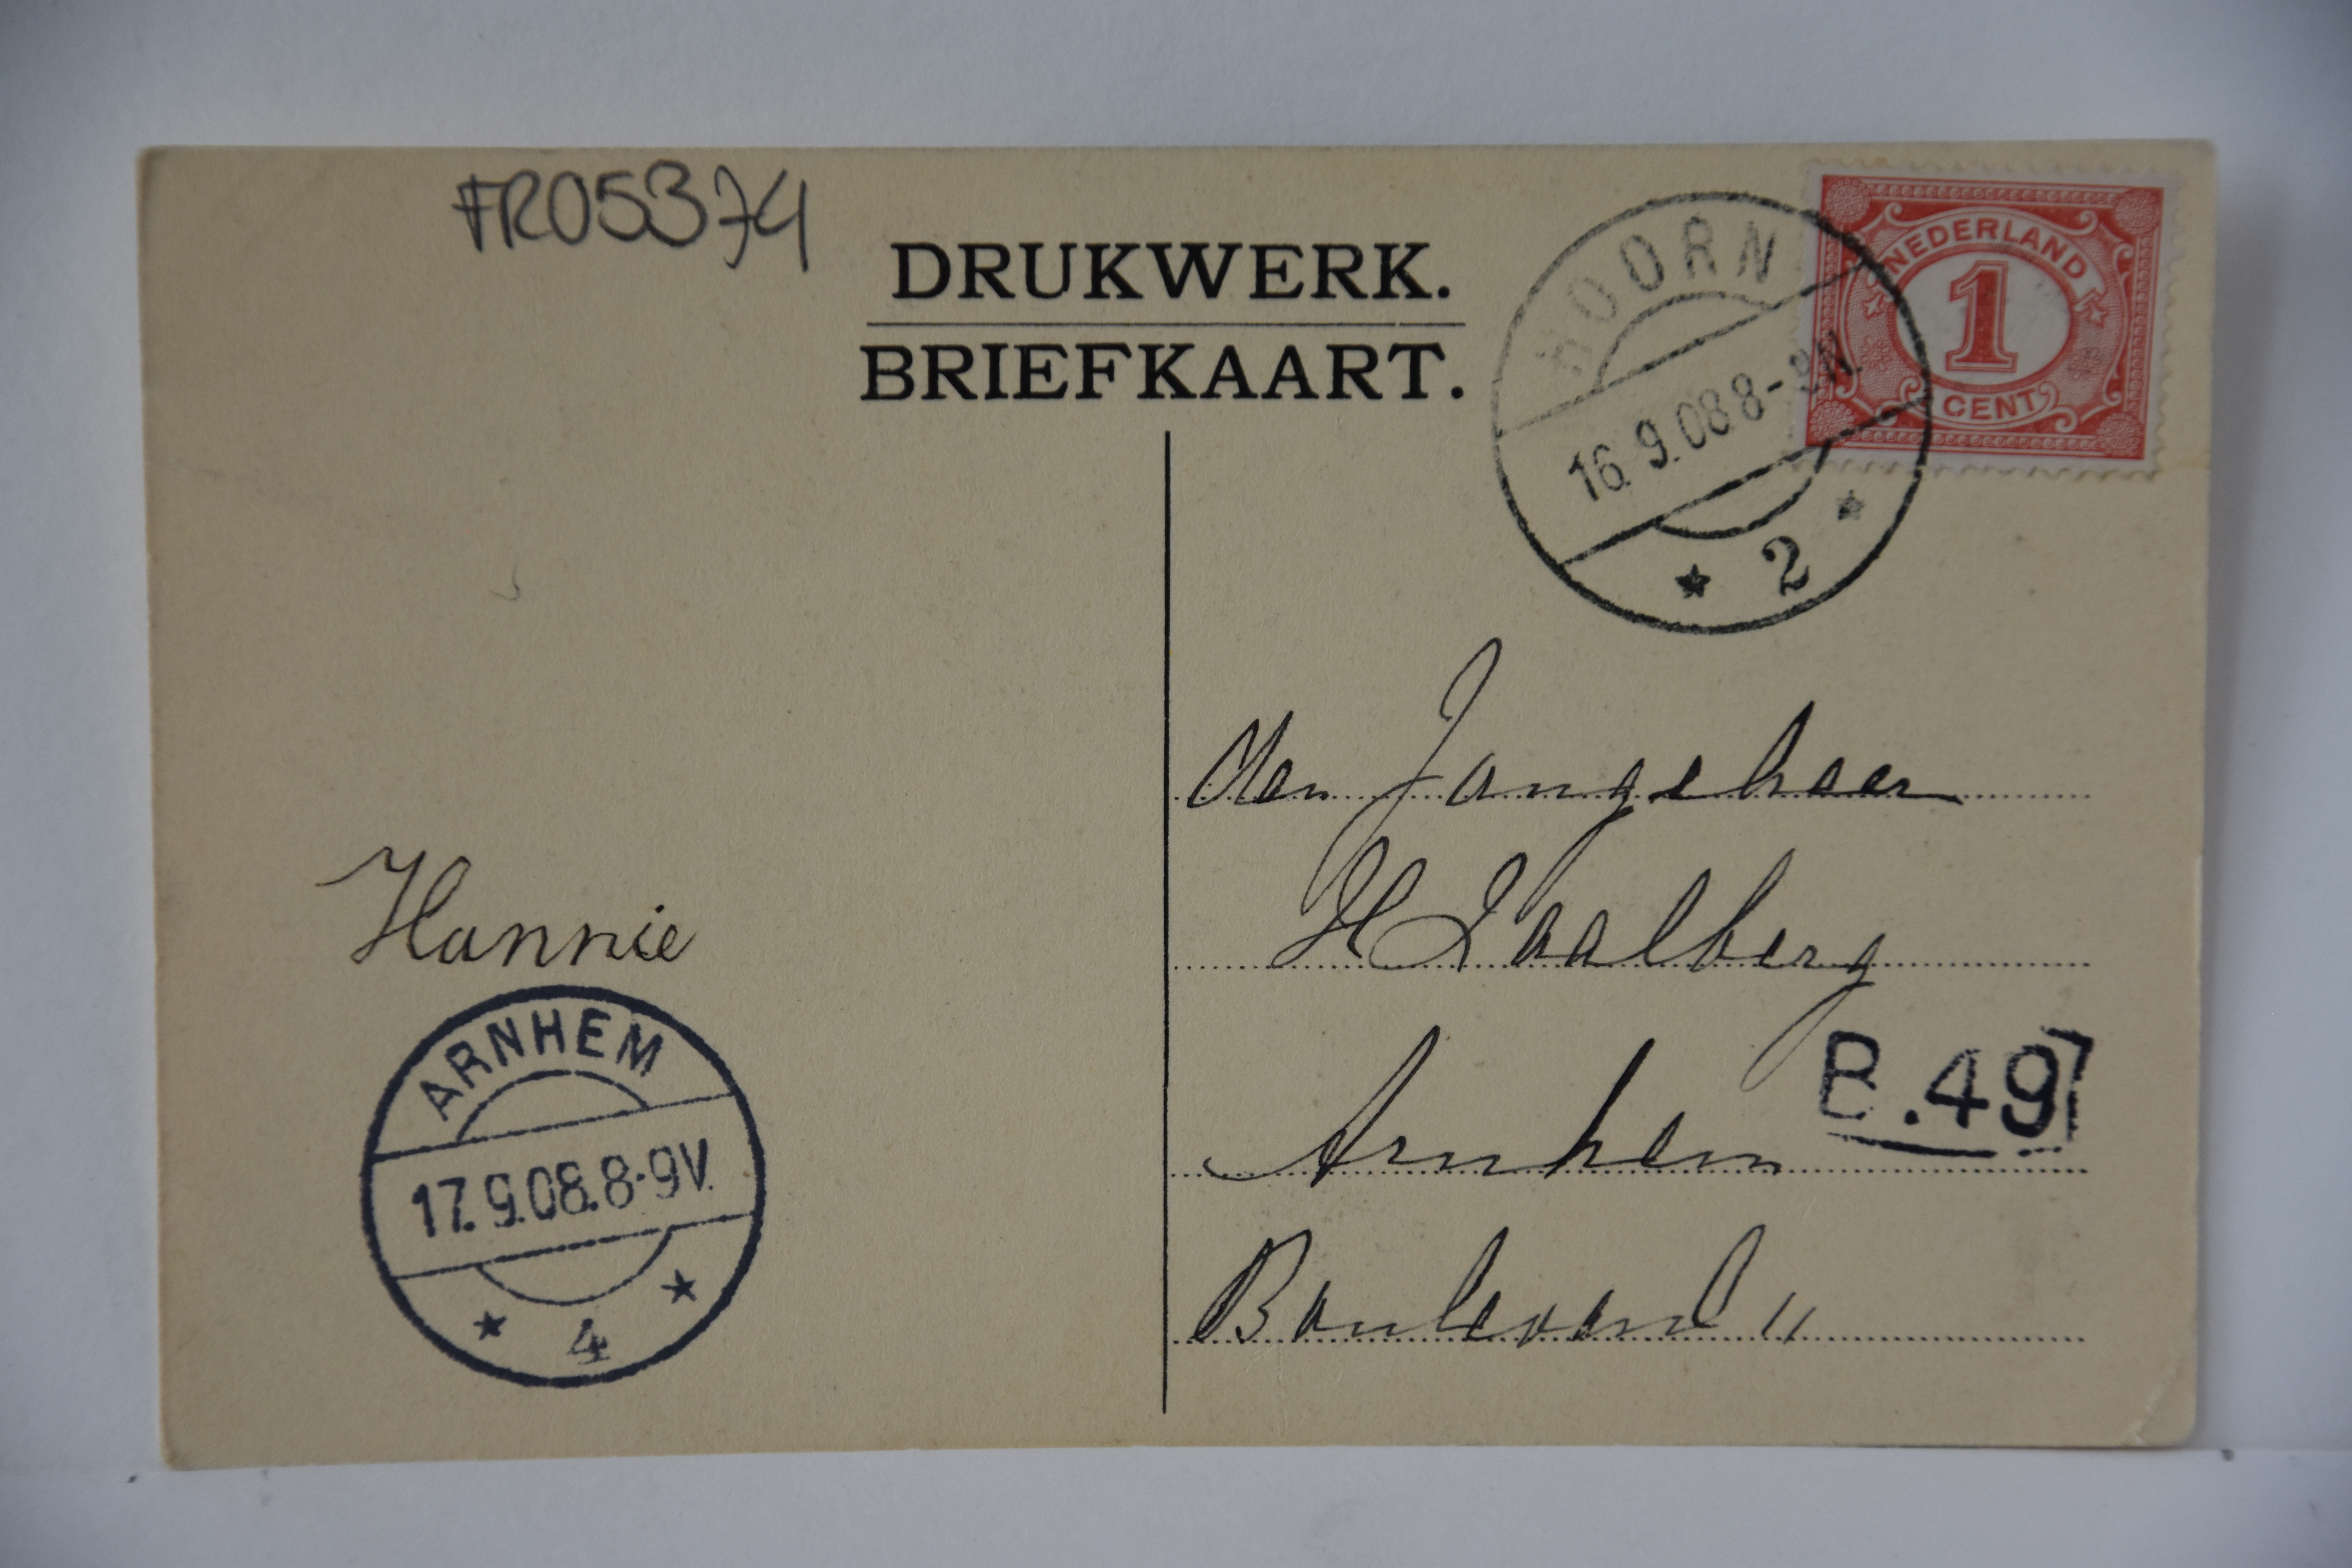 FR05374
DRUKWERK.
BRIEFKAART.
HOORN
16.9.08 8-9N
2
NEDERLAND
1
CENT
den Jongeheer
H Zaalberg
Arnhem
B.49
Boulevard 11
Hannie
ARNHEM
17.9.08.8-9V.
4